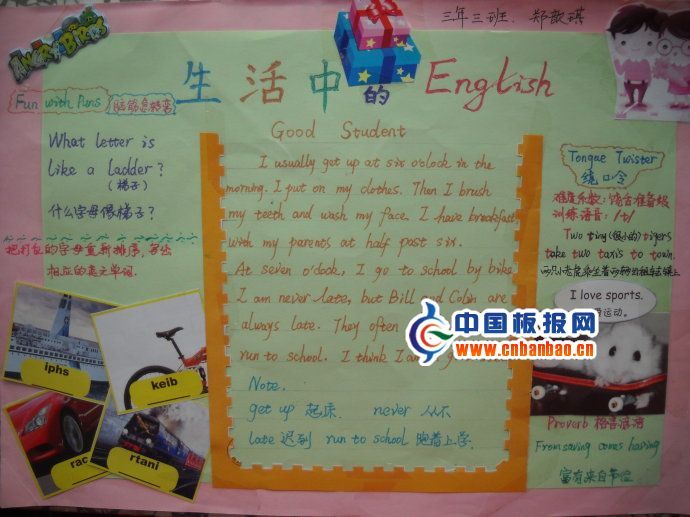 三年三班：郑歆琪
ANGRY BIRDS
生活中的English
Fun with Puns
脑筋急转弯
What letter is
like a ladder?
(梯子)
什么字母像梯子?
把打乱的字母重新排序，写出
相应的英文单词.
iphs
keib
rac
rtani
Good Student
I usually get up at six o'clock in the
morning. I put on my clothes. Then I brush
my teeth and wash my face. I have breakfast
with my parents at half past six.
At seven o'clock, I go to school by bike.
I am never late, but Bill and Colin are
always late. They often
run to school. I think I am
Note.
get up 起床. never 从不
late 迟到 run to school 跑着上学.
中国板报网
www.cnbanbao.cn
Tongue Twister
绕口令
难度系数: 饶舌准备级
训练语音: /t/
Two tiny (很小的) tigers
take two taxis to town.
两只小老虎乘坐着两辆出租车去镇上
I love sports.
运动。
Proverb 格言谚语
From saving comes having
富有来自节俭